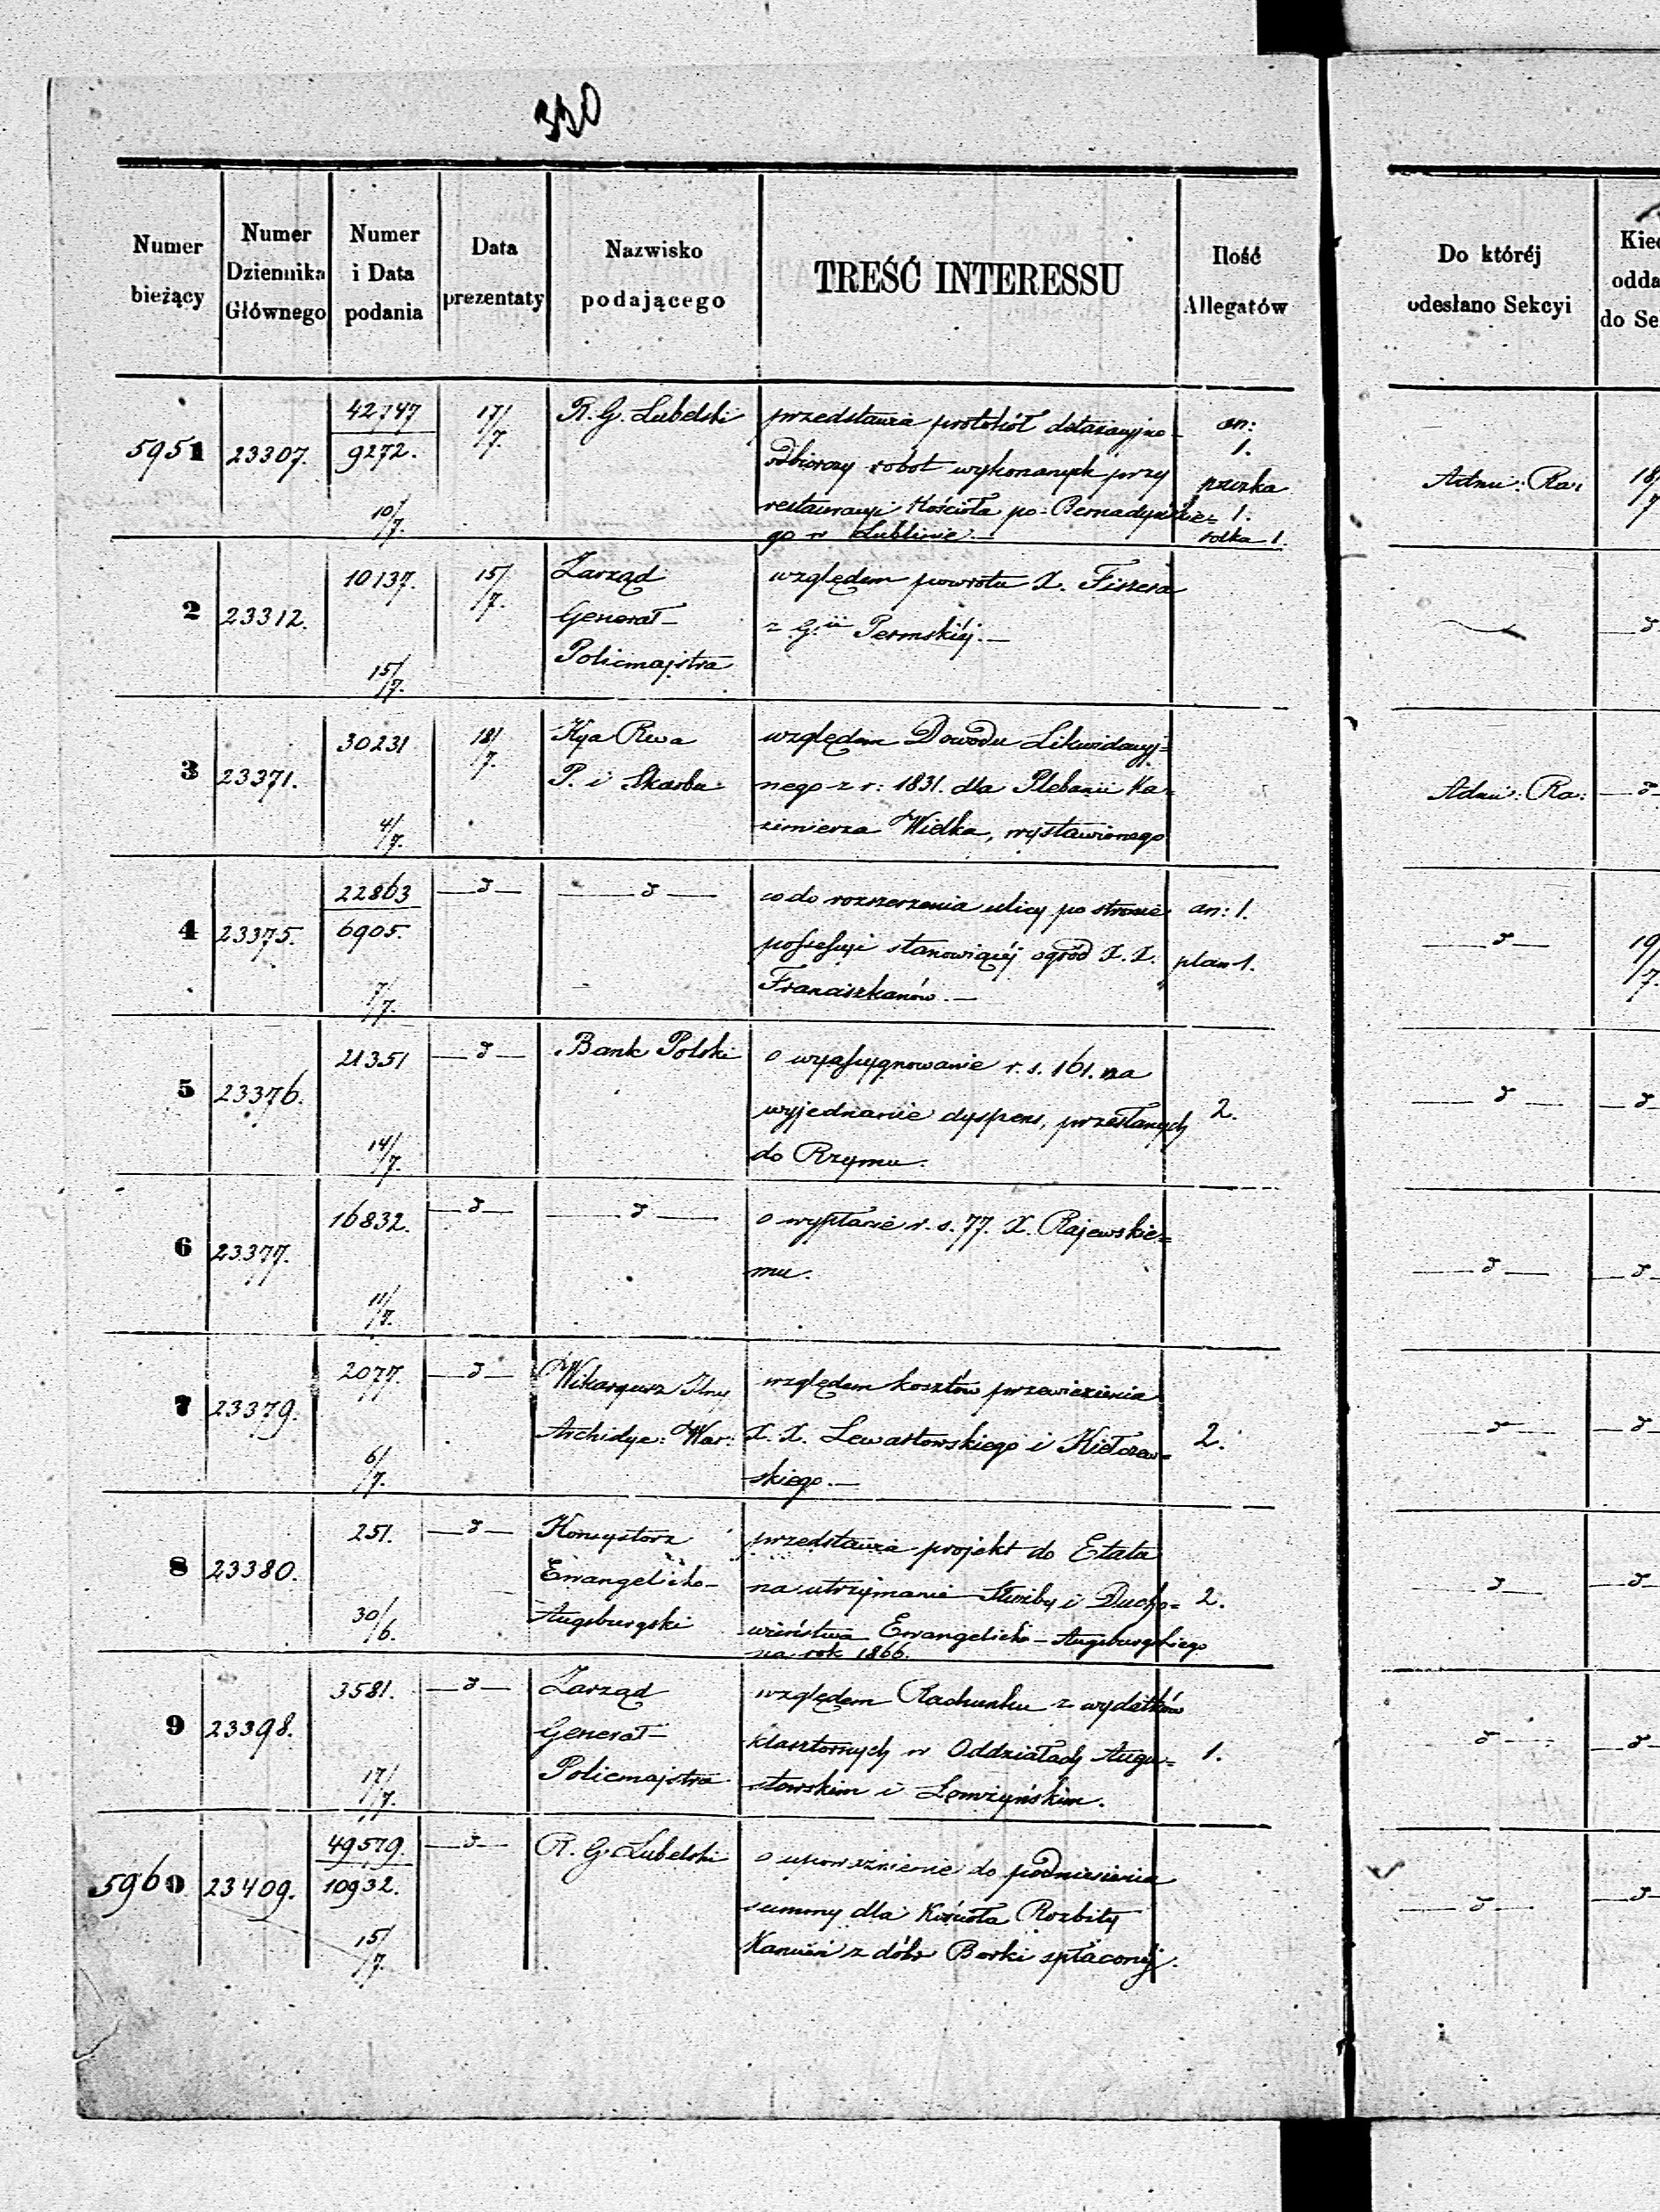 330
Numer bieżący
Numer Dziennika Głównego
Numer i Data podania
Data prezentaty
Nazwisko podającego
TREŚĆ INTERESSU
Ilość Allegatów
Do któréj odesłano Sekcyi
Kie
odda
do Se
5951 23307. 42747 17/7. R. G. Lubelski przedstawia protokół detaxacyjno- an:
9272. odbiorczy robot wykonanych przy 1.
restauracyi Kościoła po-Bernadyńskie= 1.
10/7. go w Lublinie.— rolka 1.
Admi: Ra: 18/7
2 23312. 10137. 15/7. Zarząd względem powrotu X. Fiszera
Generał- z G.ii Permskiéj.—
15/7. Policmajstra
3 23371. 30231 18/7. Kya Rwa względem Dowodu Likwidacyj=
P. i Skarbu nego z r: 1831. dla Plebanii Ka=
4/7. zimierza Wielka, wystawionego
Admi: Ra: —d—
4 23375. 22863 —d— —d— co do rozszerzenia ulicy po stronie an: 1.
6905. possessyi stanowiącéj ogród X.X. plan 1.
7/7. Franciszkanów.—
—d— 19/7.
5 23376. 21351 —d— Bank Polski o wyassygnowanie r. s. 161. na
wyjednanie dyspens, przesłanych 2.
14/7. do Rzymu.
—d— —d—
6 23377. 16832. —d— —d— o wypłacie r. s. 77. X. Rajewskie=
mu.
11/7.
—d— —d—
7 23379. 2077. —d— Wikaryusz względem kosztów przewiezienia
Archidye: War: X.X. Lewartowskiego i Kiełczew= 2.
6/7. skiego.—
—d— —d—
8 23380. 251. —d— Konsystorz przedstawia projekt do Etatu
Ewangelicko- na utrzymanie Służby i Ducho= 2.
30/6. Augsburgski wieństwa Ewangelicko-Augsburgskiego
na rok 1866.
—d— —d—
9 23398. 3581. —d— Zarząd względem Rachunku z wydatków
Generał- klasztornych w Oddziałach Augu= 1.
17/7. Policmajstra stowskim i Łomżyńskim.
—d— —d—
5960 23409. 49579. —d— R. G. Lubelski o upoważnienie do podniesienia
10932. summy dla Kościoła Rozbity
15/7. Kamień z dóbr Borki spłaconéj.
—d— —d—